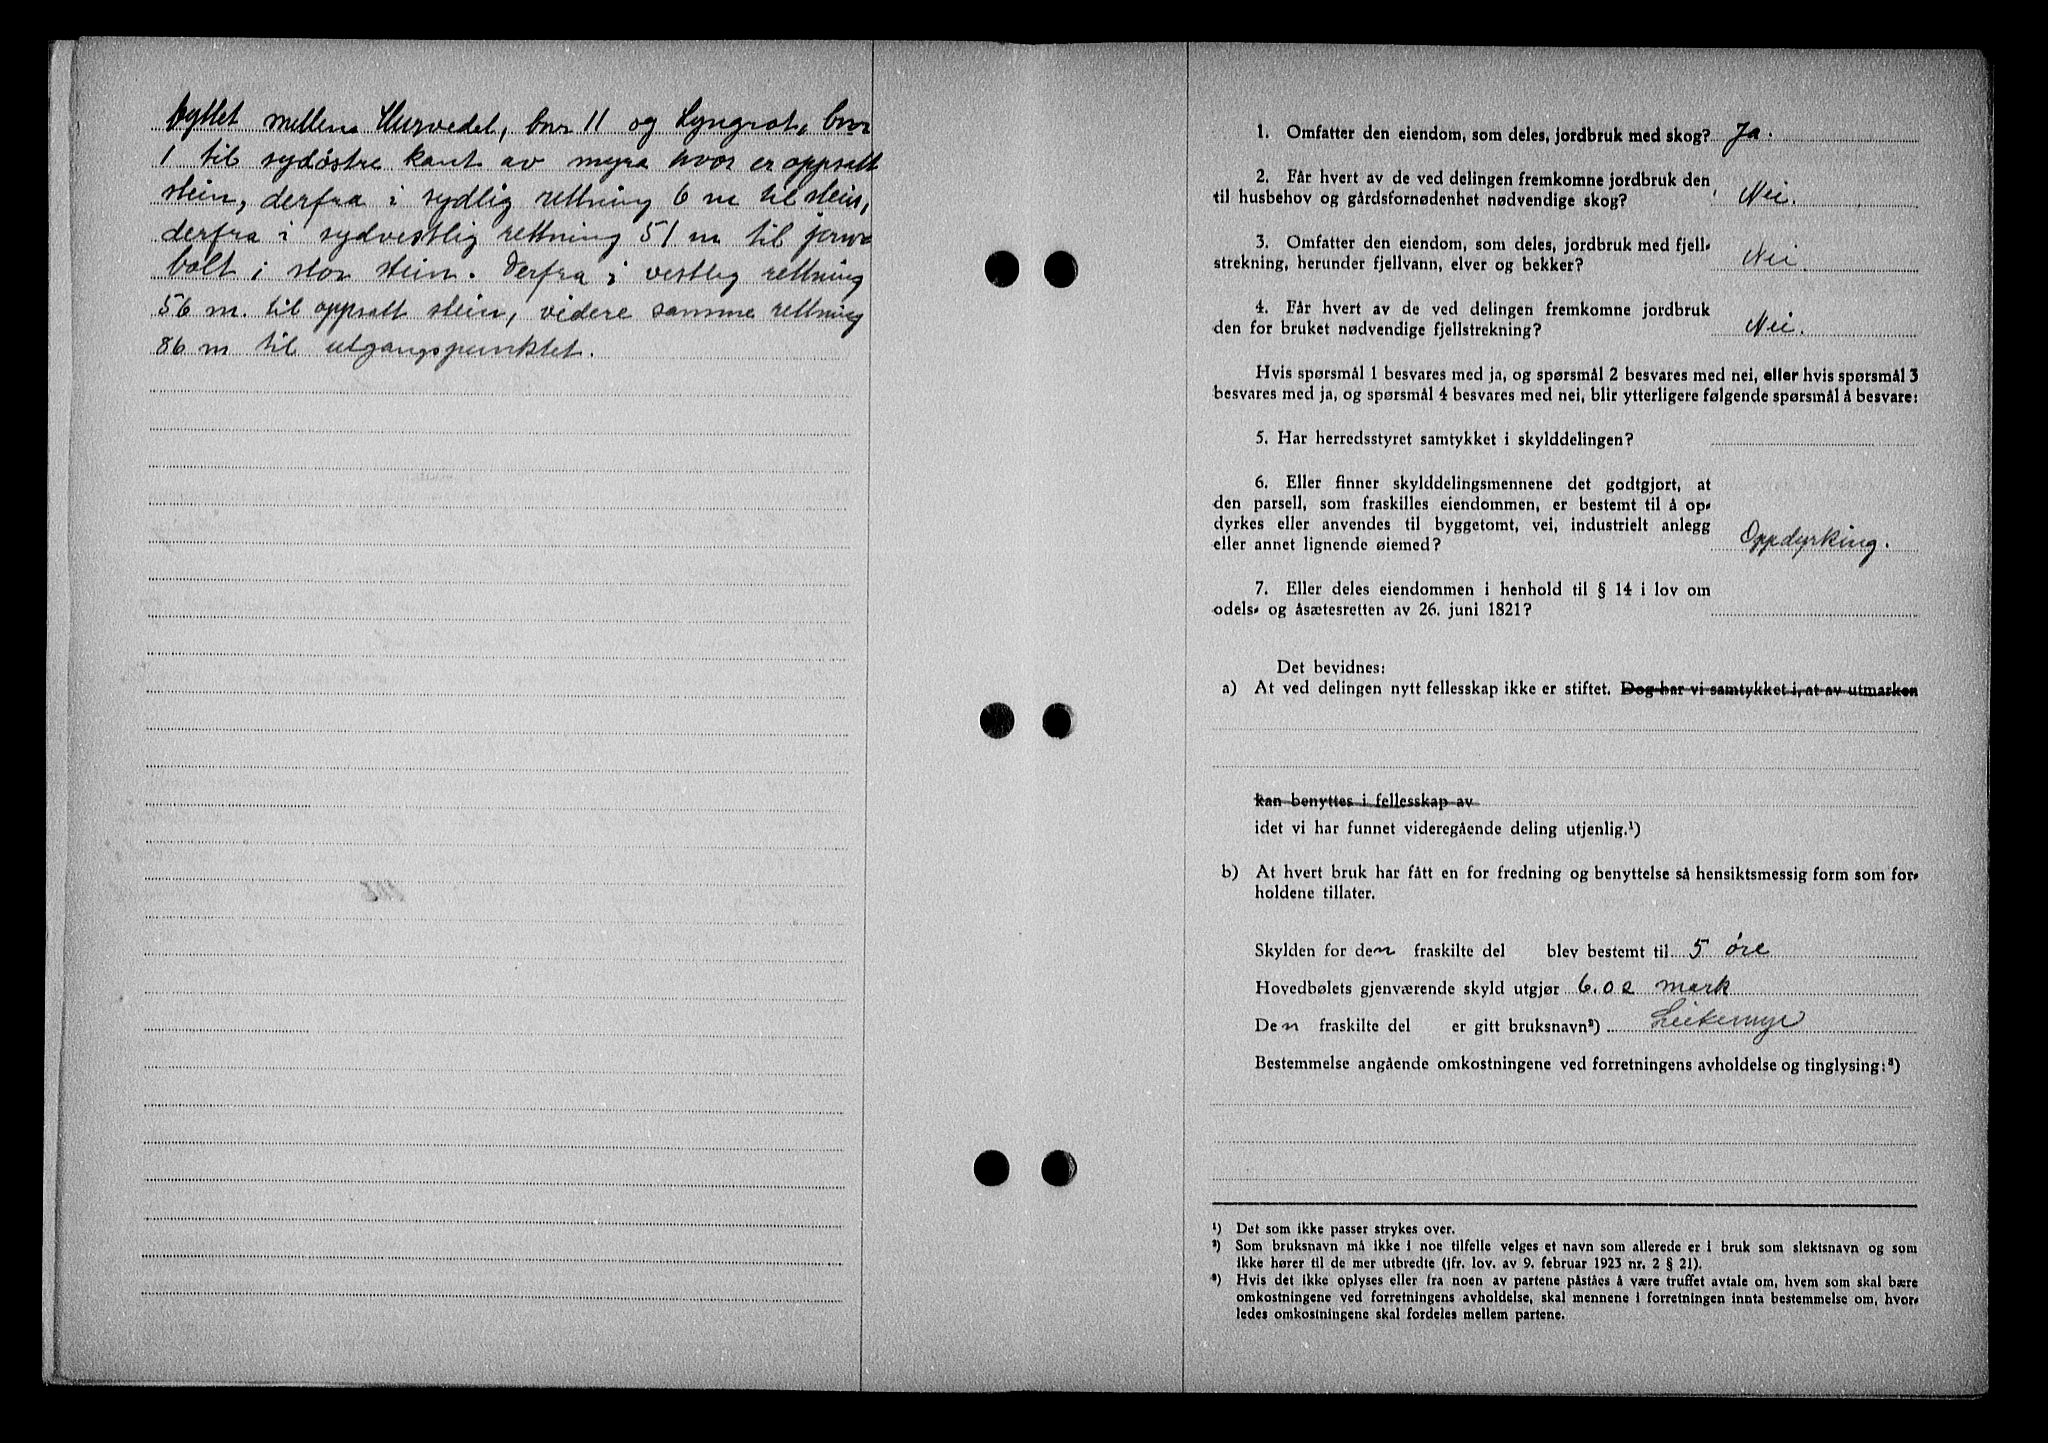 byttet mellem Hurvedel, bnr 11 og Lyngrot, bnr
1 til sydøstre kant av myra hvor er oppsatt
stein, derfra i sydlig rettning 6 m til stein,
derfra i sydvestlig rettning 51 m til jern-
bolt i stor stein. Derfra i vestlig rettning
56 m. til oppsatt stein, videre samme rettning
86 m til utgangspunktet.
1. Omfatter den eiendom, som deles, jordbruk med skog? Ja.
2. Får hvert av de ved delingen fremkomne jordbruk den
til husbehov og gårdsfornødenhet nødvendige skog? Nei.
3. Omfatter den eiendom, som deles, jordbruk med fjell-
strekning, herunder fjellvann, elver og bekker? Nei.
4. Får hvert av de ved delingen fremkomne jordbruk
den for bruket nødvendige fjellstrekning? Nei.
Hvis spørsmål 1 besvares med ja, og spørsmål 2 besvares med nei, eller hvis spørsmål 3
besvares med ja, og spørsmål 4 besvares med nei, blir ytterligere følgende spørsmål å besvare:
5. Har herredsstyret samtykket i skylddelingen?
6. Eller finner skylddelingsmennene det godtgjort, at
den parsell, som fraskilles eiendommen, er bestemt til å op-
dyrkes eller anvendes til byggetomt, vei, industrielt anlegg
eller annet lignende øiemed? Oppdyrking.
7. Eller deles eiendommen i henhold til § 14 i lov om
odels- og åsætesretten av 26. juni 1821?
Det bevidnes:
a) At ved delingen nytt fellesskap ikke er stiftet. Dog har vi samtykket i, at av utmarken
kan benyttes i fellesskap av
idet vi har funnet videregående deling utjenlig.¹)
b) At hvert bruk har fått en for fredning og benyttelse så hensiktsmessig form som for-
holdene tillater.
Skylden for den fraskilte del blev bestemt til 5 øre
Hovedbølets gjenværende skyld utgjør 6.02 mark
Den fraskilte del er gitt bruksnavn²) Leitemyr
Bestemmelse angående omkostningene ved forretningens avholdelse og tinglysing:³)
¹) Det som ikke passer strykes over.
²) Som bruksnavn må ikke i noe tilfelle velges et navn som allerede er i bruk som slektsnavn og som
ikke hører til de mer utbredte (jfr. lov. av 9. februar 1923 nr. 2 § 21).
³) Hvis det ikke oplyses eller fra noen av partene påståes å være truffet avtale om, hvem som skal bære
omkostningene ved forretningens avholdelse, skal mennene i forretningen innta bestemmelse om, hvor-
ledes omkostningene skal fordeles mellem partene.